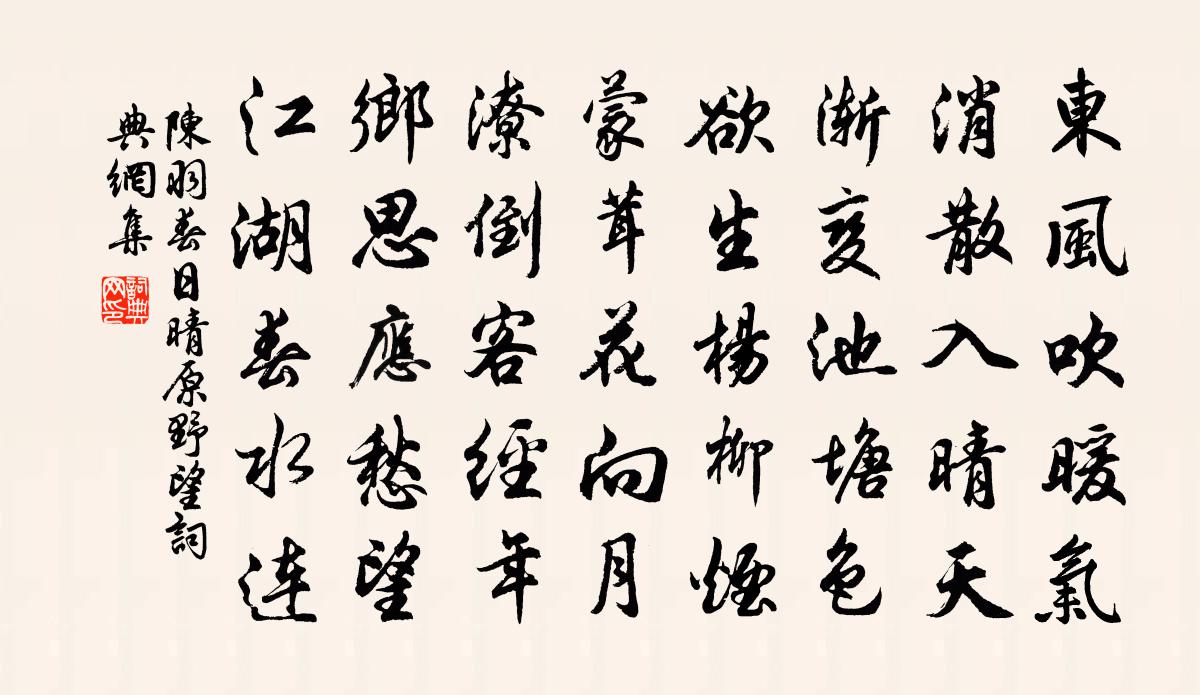 東風吹暖氣
消散入晴天
漸變池塘色
欲生楊柳煙
蒙茸花向月
潦倒客經年
鄉思應愁望
江湖春水連
陳羽春日晴原野望詞
典網集
詞典
网印